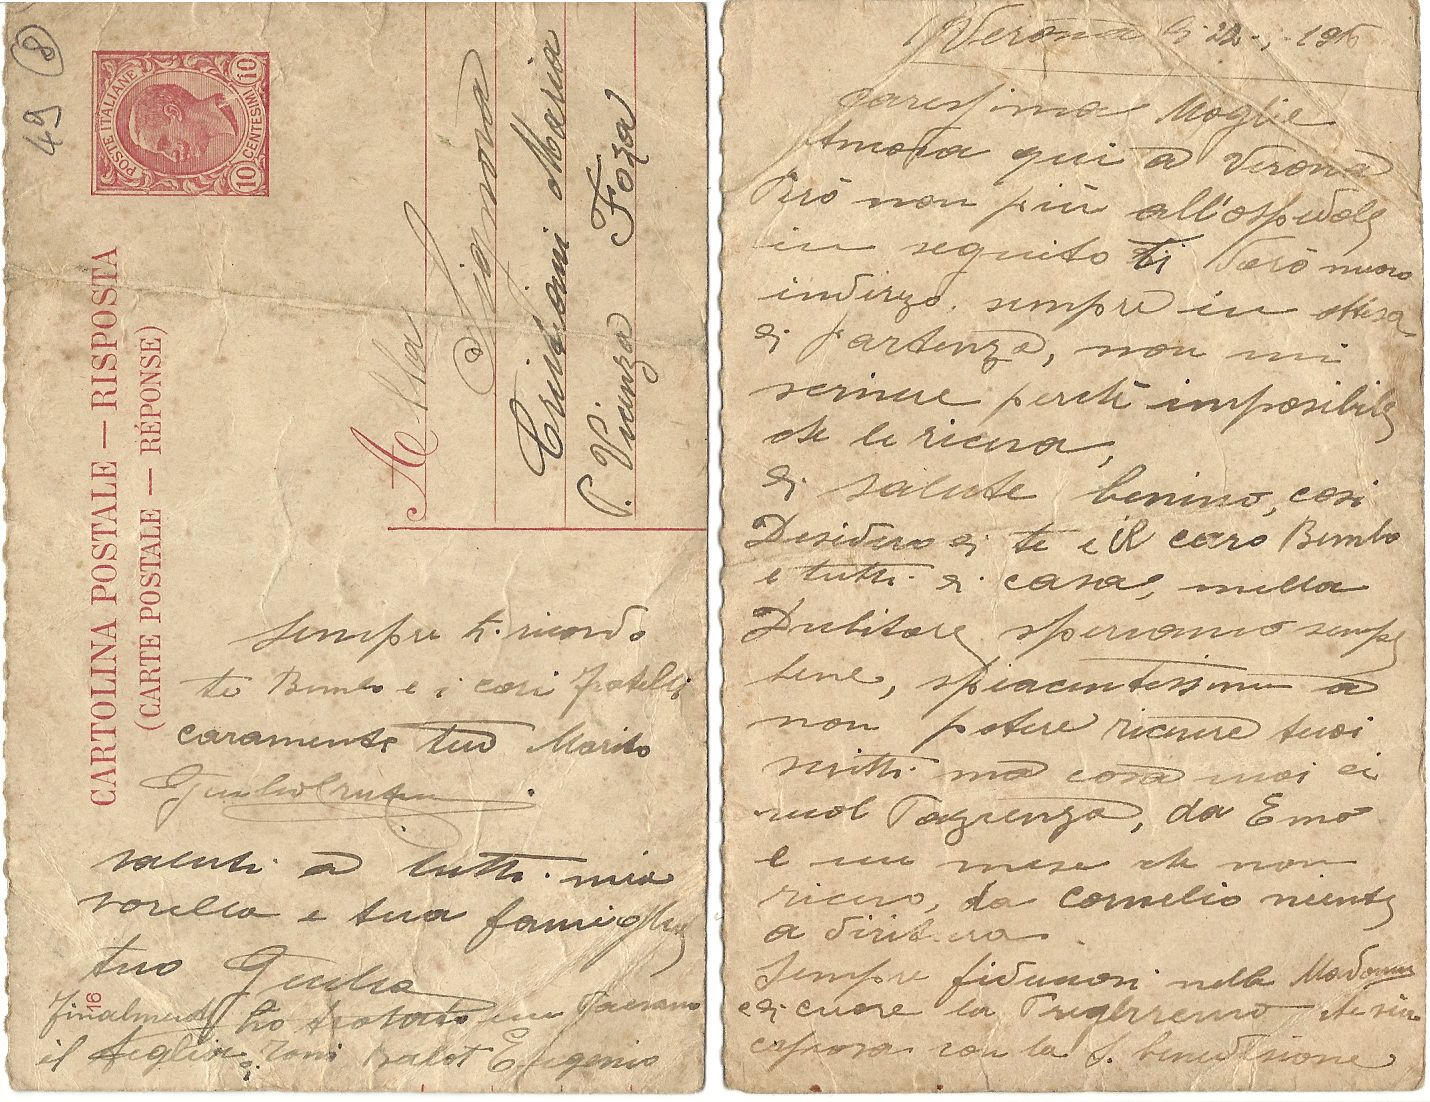 49 8
POSTE ITALIANE
CENTESIMI 10
10
CARTOLINA POSTALE — RISPOSTA
(CARTE POSTALE — RÉPONSE)
Alla
Signora
Maria
P. Vicenza Foza
sempre ti ricordo
te Bimbo e i cari fratelli
caramente tuo Marito
saluti a tutti mia
sorella e tua famiglia
tuo Giulio
16
Finalmente ho trovato un Paesano
il figlio di Toni Balot Eugenio
Verona li 22
Carissima Moglie
Ancora qui a Verona
Però non più all'ospedale
in seguito ti darò nuovo
indirizo, sempre in attesa
di partenza, non mi
scrivere perchè imposibile
che le riceva,
di salute benino, cosi
Desidero di te e il caro Bimbo
e tutti di casa, nella
Dubitare speriamo sempre
bene, spiacentissimo a
non potere ricevere tuoi
scritti ma cosa vuoi ci
vuol Pazienza, da Emo
è un mese che non
ricevo, da Cornelio niente
a diritura.
Sempre fiduciosi nella Madonna
e di cuore la Pregheremo che
con la S. benedizione